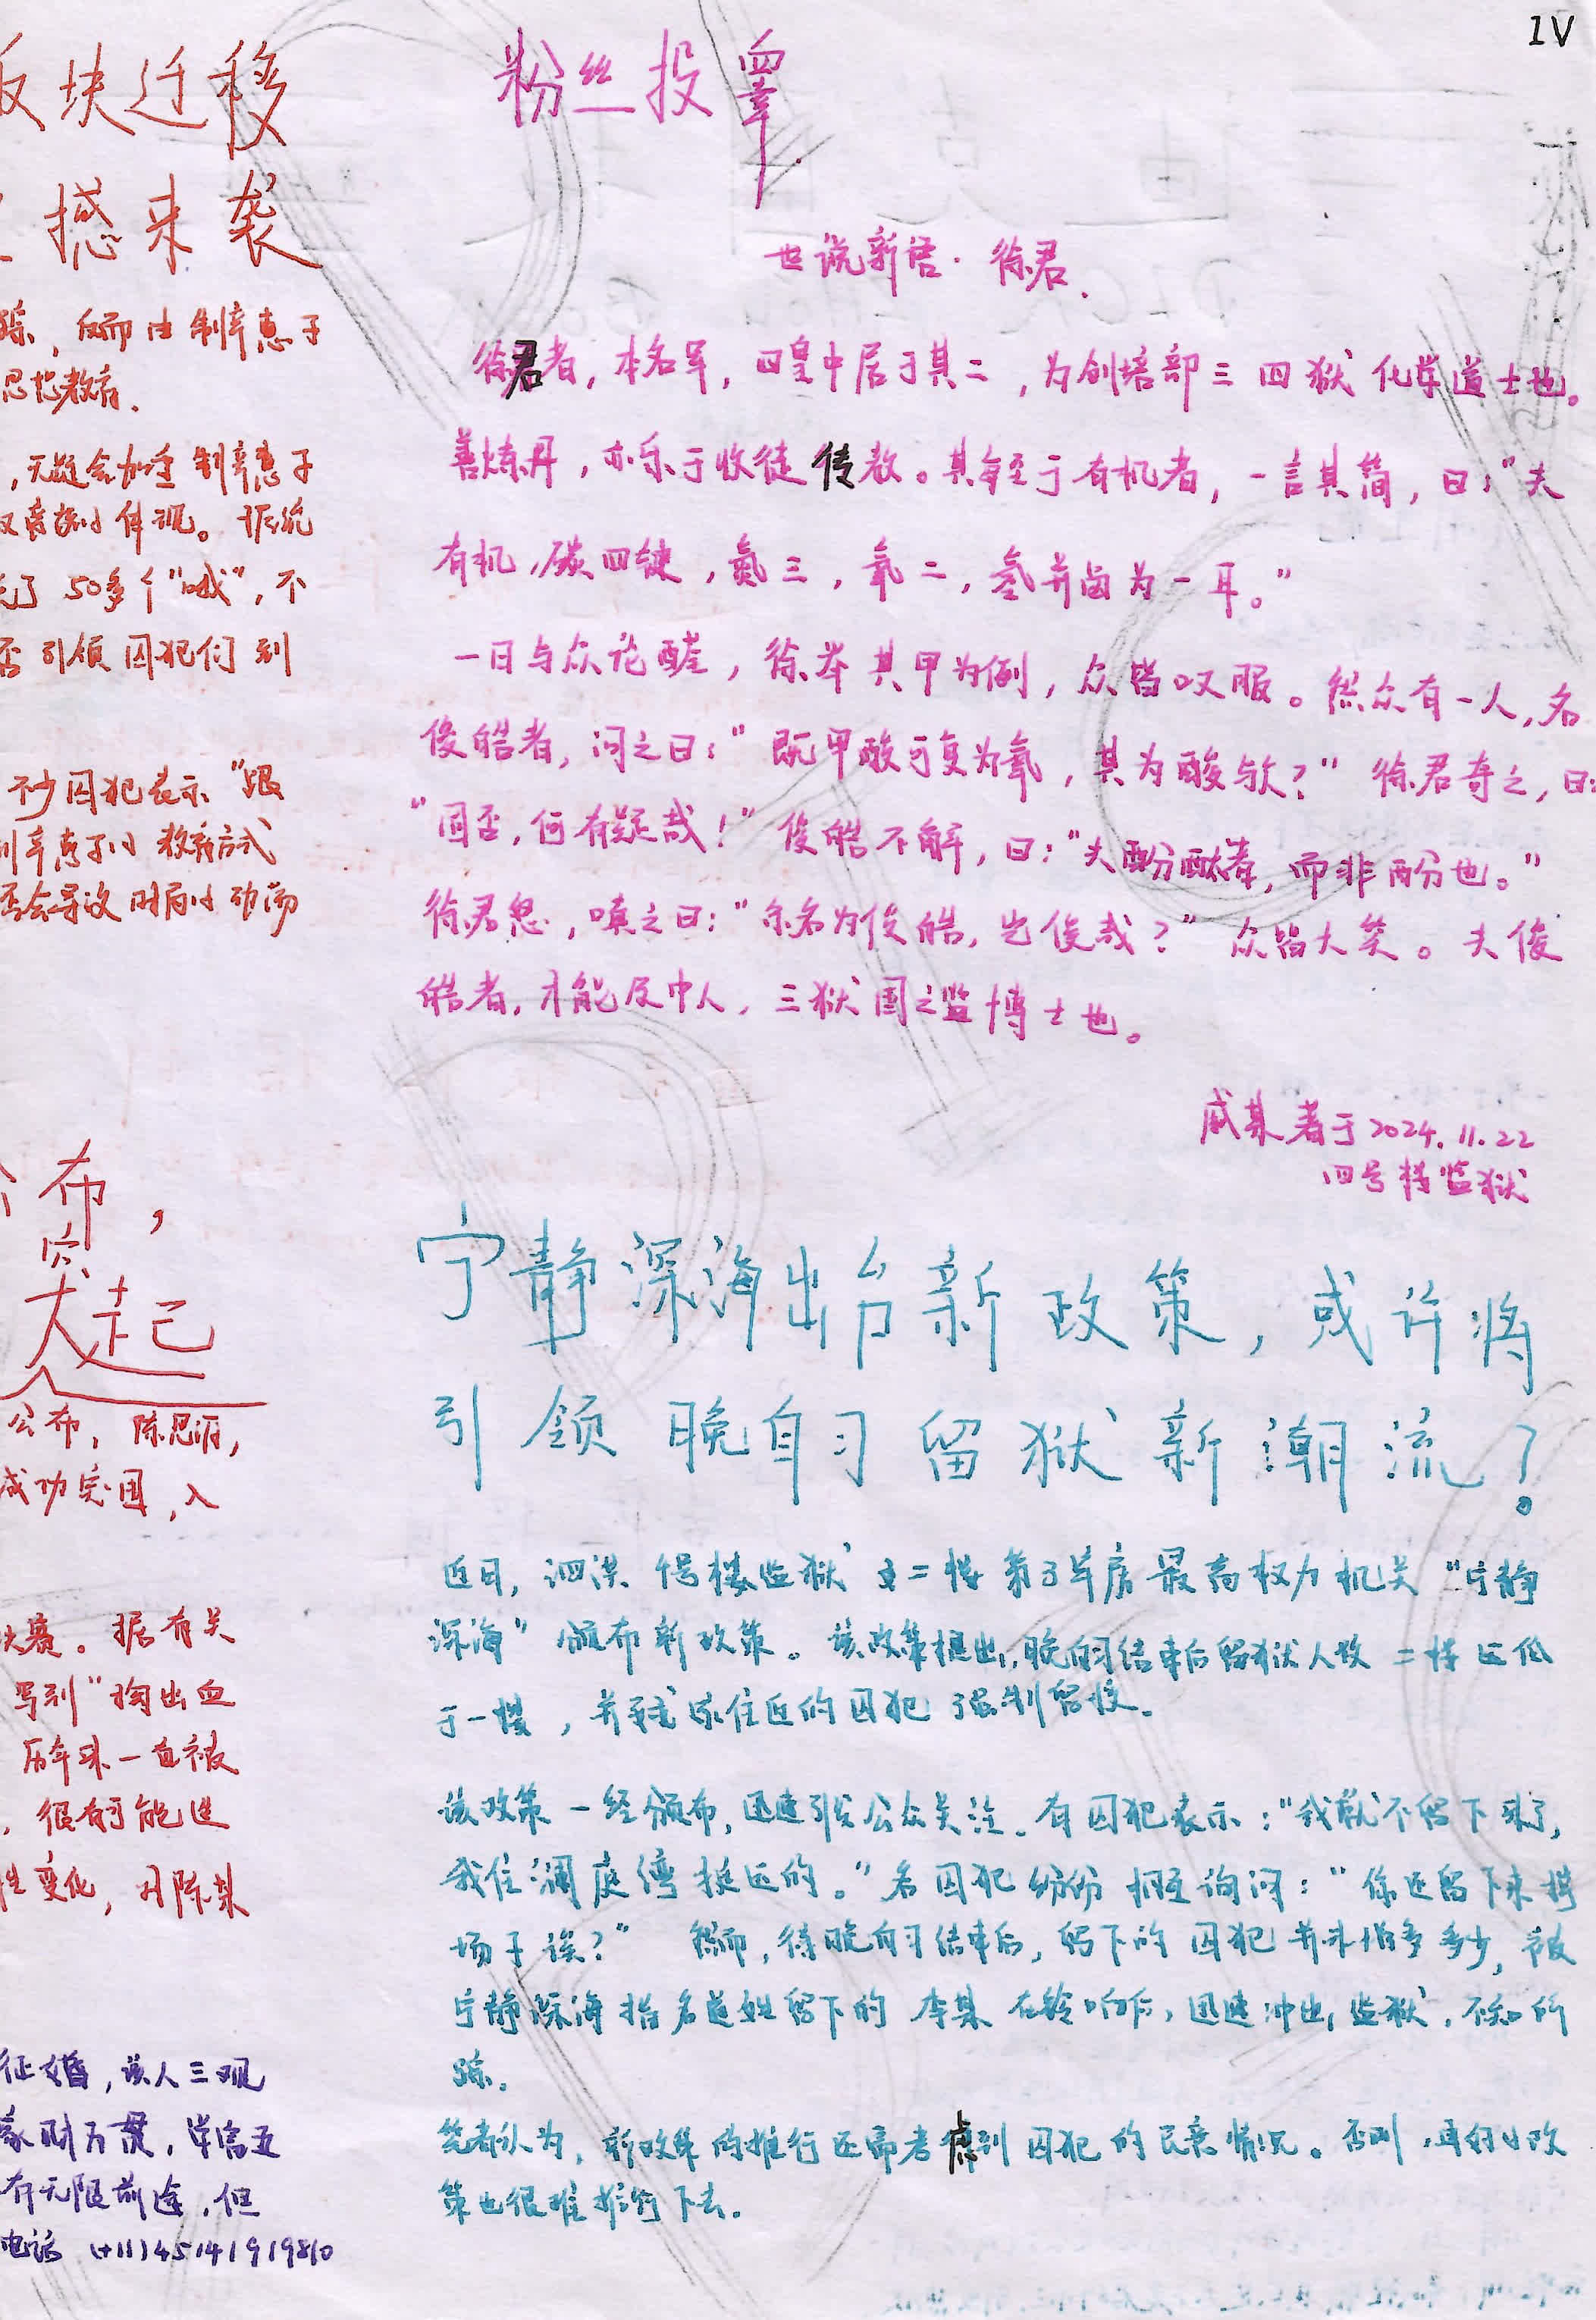 IV
板块迁移
撼来袭
踪，反而由制辛惠子
思想教育.
，无疑会加重制辛惠子
50多个“哦”，不
否引领囚犯们到
不少囚犯表示“跟
制辛惠子的教育方式
否会导致时局的动荡
公布，
突
大起
公布，陈思涵，
成功突围，入
决赛。据有关
写到“掏出血
历年来一直被
，很有可能迭
性变化，对陈某
征婚，该人三观
家财万贯，学富五
有无限前途，但
电话 (+11)45141919810
粉丝投羃
世说新语·徐君.
徐君者，本名军，四皇中居于其二，为创培部三四狱化学道士也。
善炼丹，亦乐于收徒传教。其每至于有机者，一言其简，曰：“夫
有机，碳四键，氮三，氧二，氢并卤为一耳。”
一日与众论醛，徐举其甲为例，众皆叹服。然众有一人，名
俊皓者，问之曰：“既甲酸可复为氧，其为酸欤？”徐君奇之，曰：
“固否，何有疑哉！”俊皓不解，曰：“夫酚酞者，而非酚也。”
徐君怒，嗔之曰：“尔名为俊皓，岂俊哉？”众皆大笑。夫俊
皓者，才能及中人，三狱国之监博士也。
戚某著于2024.11.22
四号楼监狱
宁静深海出台新政策，或许将
引领晚自习留狱新潮流？
近日，泗洪4号楼监狱二楼第3牢房最高权力机关“宁静
深海”颁布新政策。该政策提出，晚自习结束后留狱人数二楼远低
于一楼，并要求家住近的囚犯强制留校。
该政策一经颁布，迅速引发公众关注。有囚犯表示：“我就不留下来了，
我住澜庭湾挺远的。”各囚犯纷纷相互询问：“你还留下来撑
场子诶？”然而，待晚自习结束后，留下的囚犯并未增多多少，被
宁静深海指名道姓留下的李某在铃响后，迅速冲出监狱，不知所
踪。
笔者认为，新政策的推行还需考虑到囚犯的民意情况。否则，再好的政
策也很难推行下去。